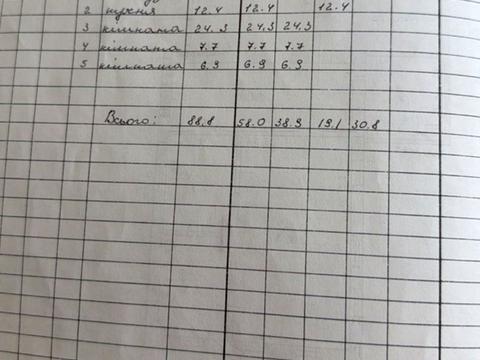 2 кухня 12.4 12.4 12.4
3 кімната 24.3 24.3 24.3
4 кімната 7.7 7.7 7.7
5 кімната 6.9 6.9 6.9
Всього: 88.8 58.0 38.9 19.1 30.8